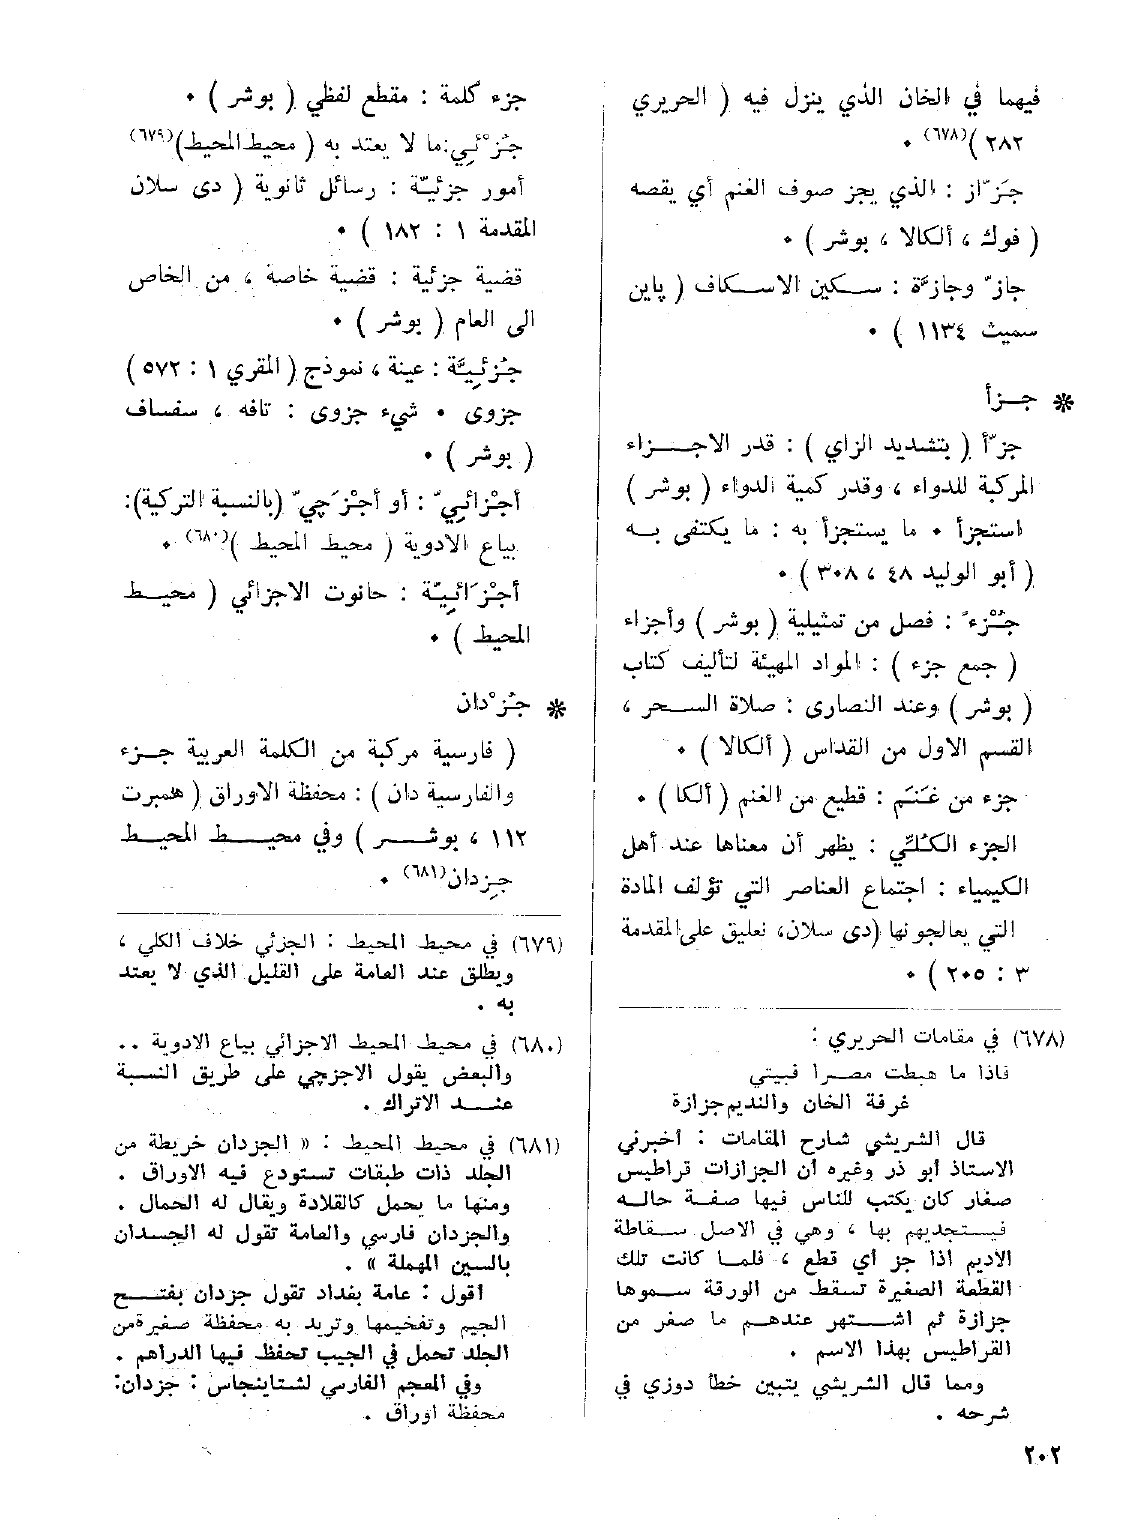 فيهما في الخان الذي ينزل فيه ( الحريري
٢٨٢ )(٦٧٨) ٠
جَزّاز : الذي يجز صوف الغنم أي يقصه
( فوك ، ألكالا ، بوشر ) ٠
جازّ وجازّة : سكين الاسكاف ( پاين
سميث ١١٣٤ ) ٠
* جزأ
جزّأ ( بتشديد الزاي ) : قدر الاجزاء
المركبة للدواء ، وقدر كمية الدواء ( بوشر )
استجزأ ٠ ما يستجزأ به : ما يكتفى به
( أبو الوليد ٤٨ ، ٣٠٨ ) ٠
جُزْء : فصل من تمثيلية ( بوشر ) وأجزاء
( جمع جزء ) : المواد المهيئة لتأليف كتاب
( بوشر ) وعند النصارى : صلاة السحر ،
القسم الاول من القداس ( ألكالا ) ٠
جزء من غَنَم : قطيع من الغنم ( ألكا ) ٠
الجزء الكُلّي : يظهر أن معناها عند أهل
الكيمياء : اجتماع العناصر التي تؤلف المادة
التي يعالجونها (دى سلان، تعليق على المقدمة
٣ : ٢٠٥ ) ٠
(٦٧٨) في مقامات الحريري :
فاذا ما هبطت مصرا فبيتي
غرفة الخان والنديم جزازة
قال الشريشي شارح المقامات : أخبرني
الاستاذ أبو ذر وغيره أن الجزازات قراطيس
صغار كان يكتب للناس فيها صفة حاله
فيستجديهم بها ، وهي في الاصل سقاطة
الاديم اذا جز أي قطع ، فلما كانت تلك
القطعة الصغيرة تسقط من الورقة سموها
جزازة ثم اشتهر عندهم ما صغر من
القراطيس بهذا الاسم .
ومما قال الشريشي يتبين خطأ دوزي في
شرحه .
جزء كلمة : مقطع لفظي ( بوشر ) ٠
جُزْئِي: ما لا يعتد به ( محيط المحيط)(٦٧٩)
أمور جزئيّة : رسائل ثانوية ( دى سلان
المقدمة ١ : ١٨٢ ) ٠
قضية جزئية : قضية خاصة ، من الخاص
الى العام ( بوشر ) ٠
جُزئِيَّة : عينة ، نموذج ( المقري ١ : ٥٧٢ )
جزوى ٠ شيء جزوى : تافه ، سفساف
( بوشر ) ٠
أجْزائِيّ : أو أجْزَچيّ (بالنسبة التركية):
بياع الادوية ( محيط المحيط )(٦٨٠) ٠
أجْزَائِيّة : حانوت الاجزائي ( محيط
المحيط ) ٠
* جُزْدان
( فارسية مركبة من الكلمة العربية جزء
والفارسية دان ) : محفظة الاوراق ( همبرت
١١٢ ، بوشر ) وفي محيط المحيط
جِزدان(٦٨١) ٠
(٦٧٩) في محيط المحيط : الجزئي خلاف الكلي ،
ويطلق عند العامة على القليل الذي لا يعتد
به .
(٦٨٠) في محيط المحيط الاجزائي بياع الادوية ..
والبعض يقول الاجزجي على طريق النسبة
عند الاتراك .
(٦٨١) في محيط المحيط : « الجزدان خريطة من
الجلد ذات طبقات تستودع فيه الاوراق .
ومنها ما يحمل كالقلادة ويقال له الحمال .
والجزدان فارسي والعامة تقول له الجسدان
بالسين المهملة » .
أقول : عامة بغداد تقول جزدان بفتح
الجيم وتفخيمها وتريد به محفظة صغيرة من
الجلد تحمل في الجيب تحفظ فيها الدراهم .
وفي المعجم الفارسي لشتاينجاس : جزدان:
محفظة اوراق .
٢٠٢